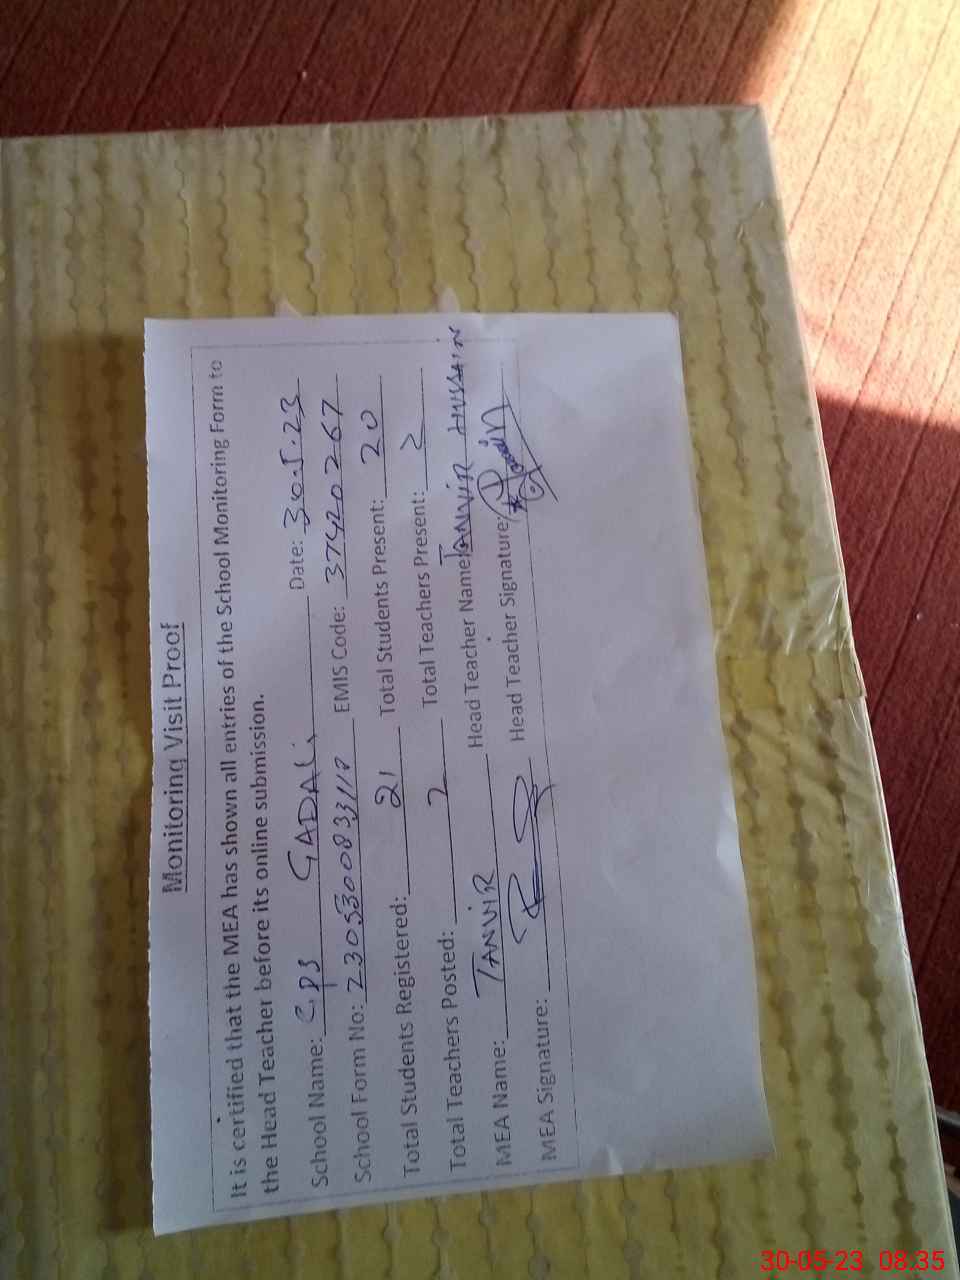 Monitoring Visit Proof
It is certified that the MEA has shown all entries of the School Monitoring Form to
the Head Teacher before its online submission.
School Name: GPS GADALI Date: 30.5.23
School Form No: 230530083311 EMIS Code: 37420267
Total Students Registered: 21 Total Students Present: 20
Total Teachers Posted: 2 Total Teachers Present: 2
MEA Name: TANVIR Head Teacher Name: TANVIR HUSSAIN
MEA Signature: Head Teacher Signature:
30-05-23 08.35